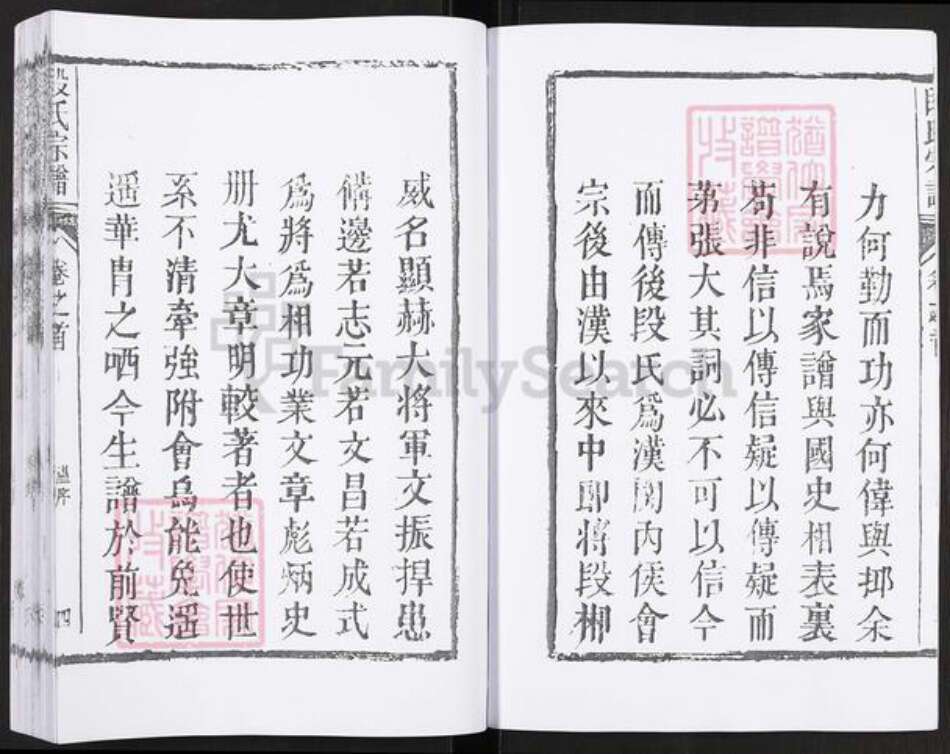 力何勤而功亦何偉與抑余
有說焉家譜與國史相表裏
苟非信以傳信疑以傳疑而
第張大其詞必不可以信今
而傳後段氏爲漢関内侯會
宗後由漢以來中郎將段熲
威名顯赫大將軍文振捍患
備邊若志元若文昌若成式
爲將爲相功業文章彪炳史
册尤大章明較著者也使世
系不清牽強附會烏能免遥
遥華冑之哂今生譜於前賢
段氏宗譜
卷之首
四
FamilySearch